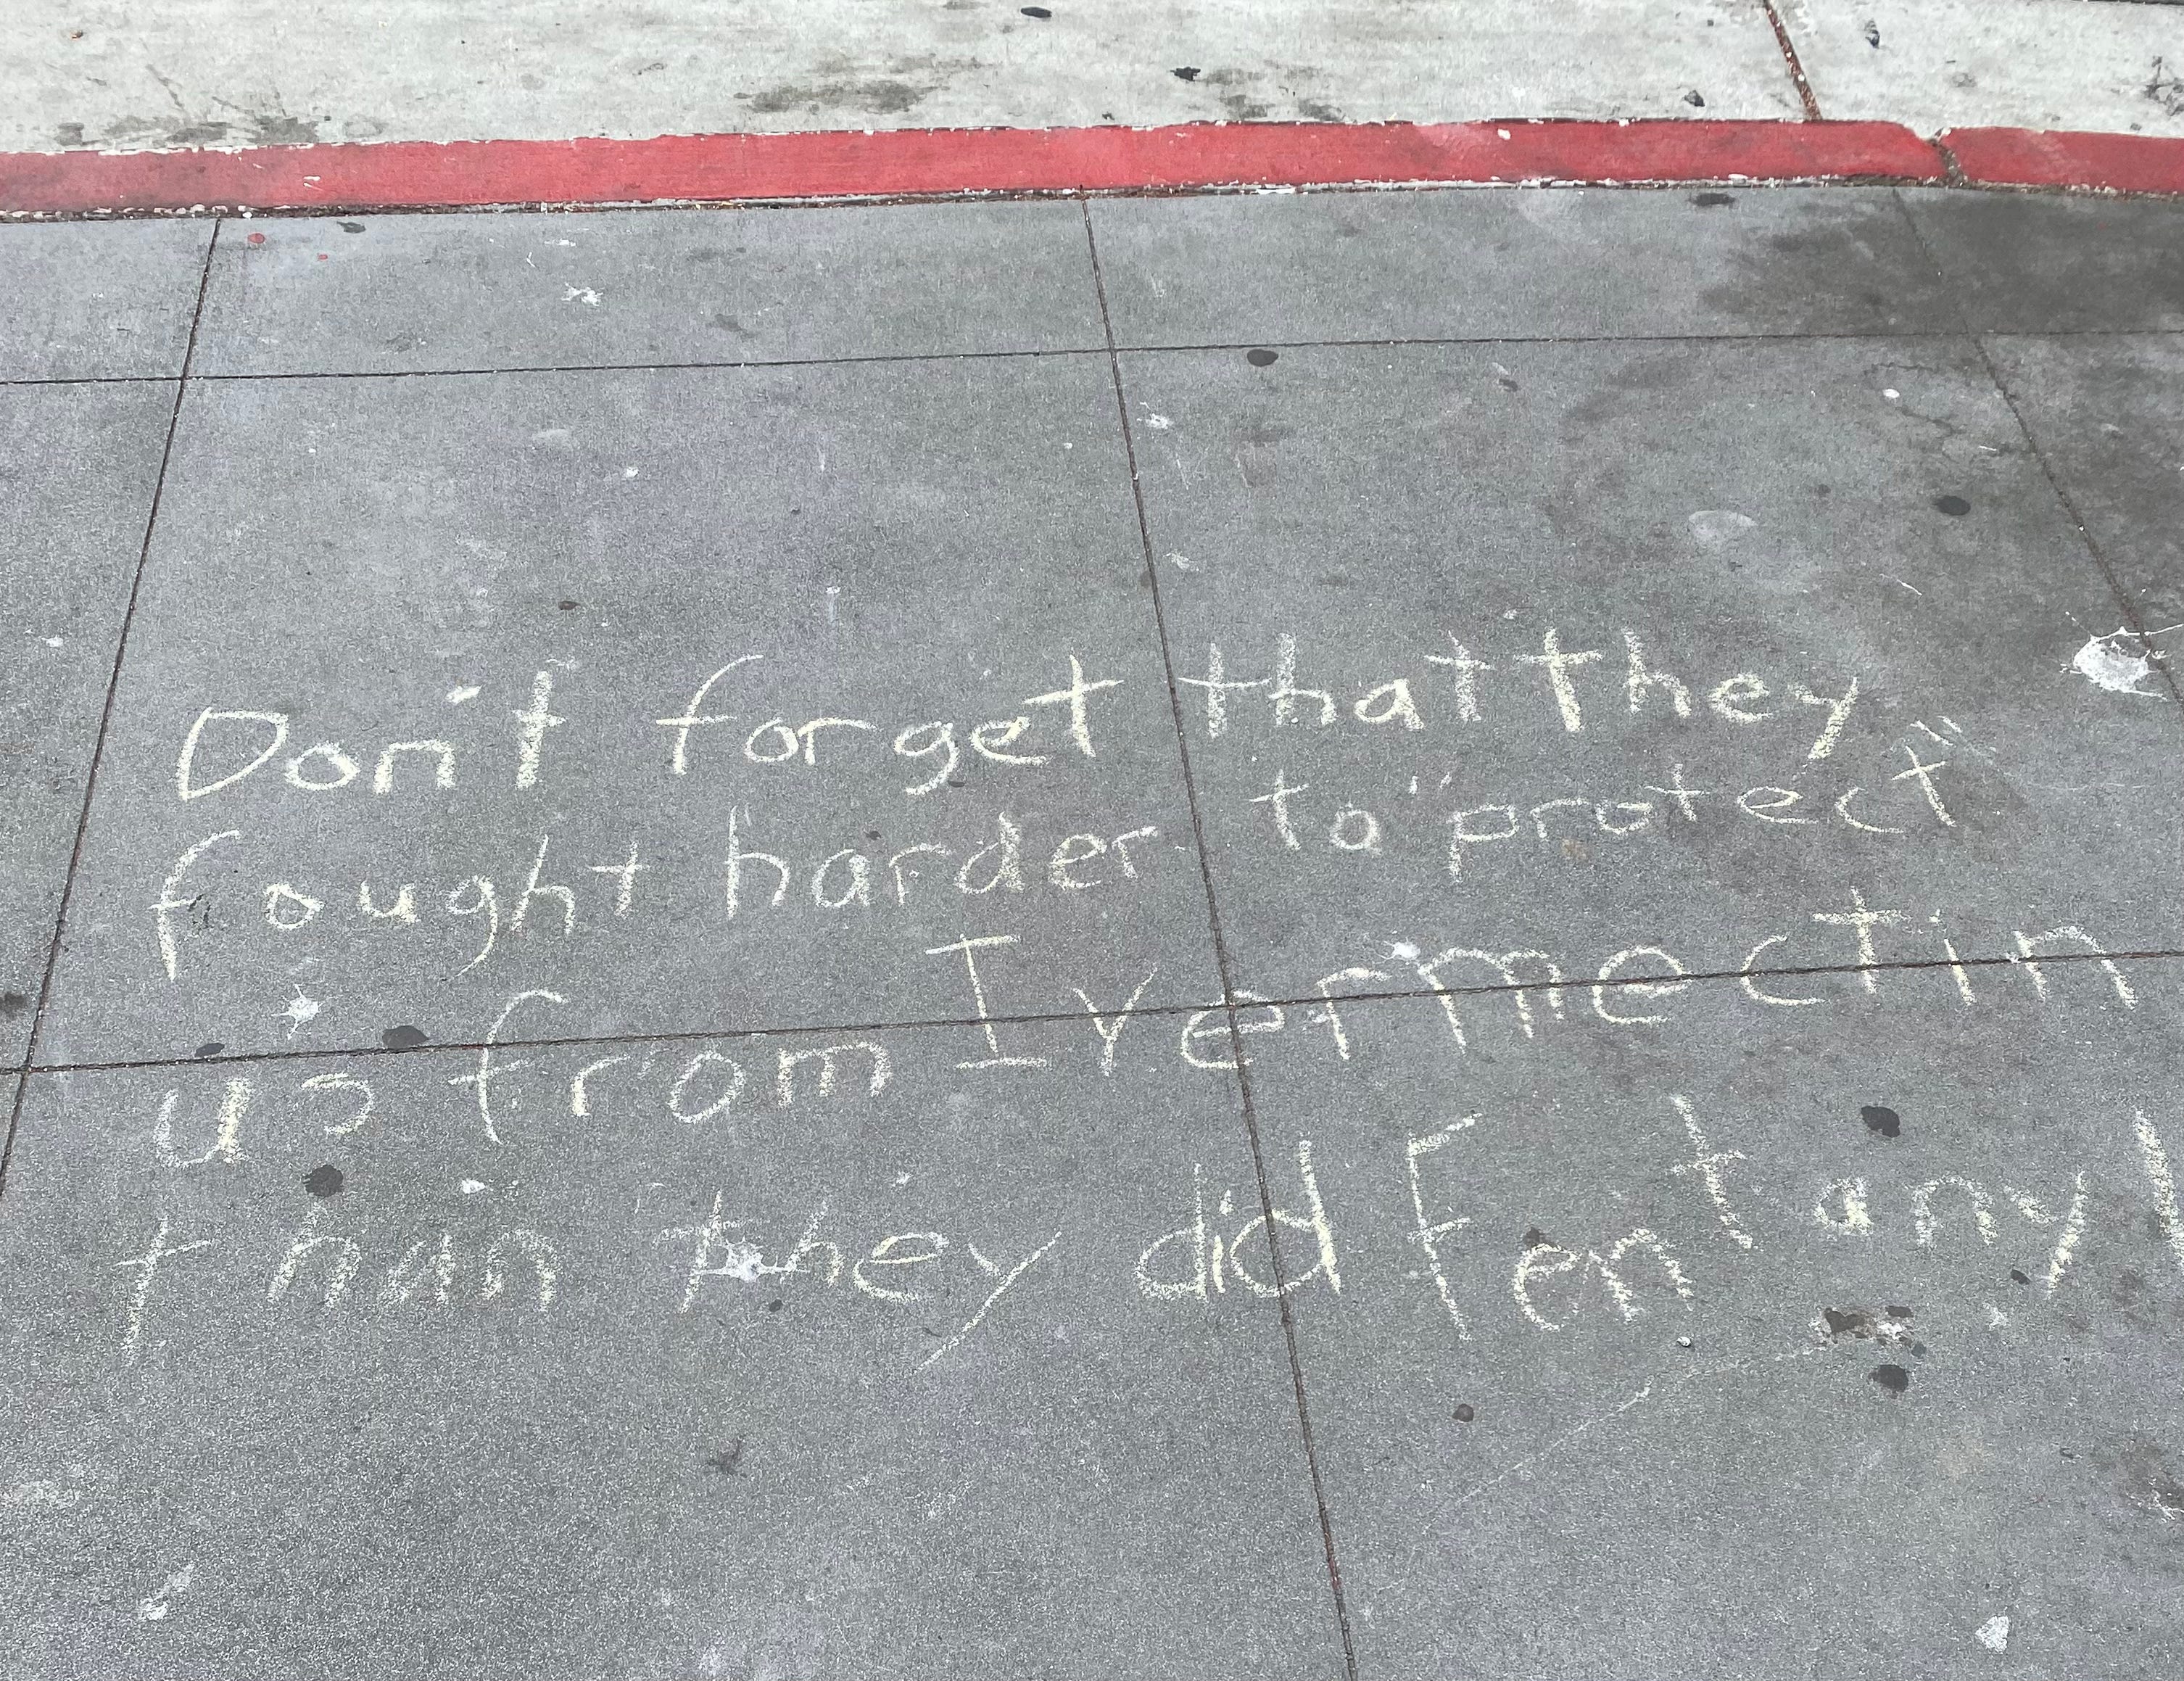 Don't forget that they
fought harder to "protect"
us from Ivermectin
than they did Fentanyl